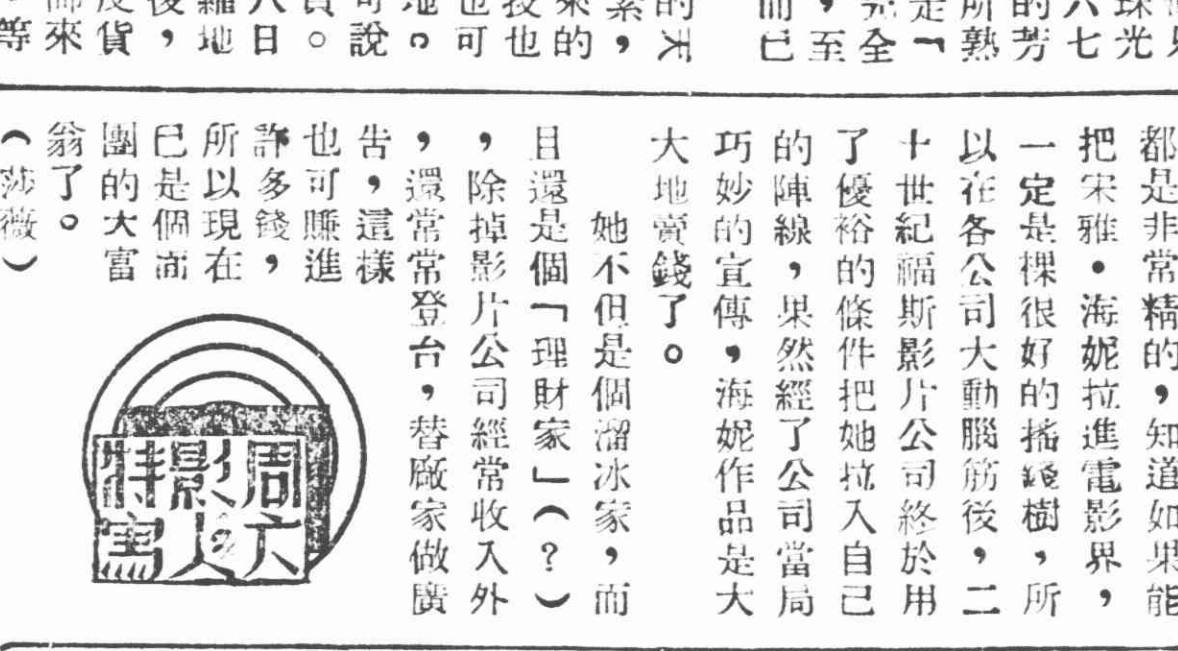 珠光
六七
的芳
所熟
是「
完全
，至
而已
的天
素，
來的
技也
也可
地。
可說
。
八日
縮地
後，
貨
而來
等
都是非常精的，知道如果能
把宋雅·海妮拉進電影界，
一定是棵很好的搖錢樹，所
以在各公司大動腦筋後，二
十世紀福斯影片公司終於用
了優裕的條件把她拉入自己
的陣線，果然經了公司當局
巧妙的宣傳，海妮作品是大
大地賣錢了。
她不但是個溜冰家，而
且還是個「理財家」（？）
，除掉影片公司經常收入外
，還常常登台，替廠家做廣
告，這樣
也可賺進
許多錢，
所以現在
已是個面
團的大富
翁了。
（莎薇）
周六
影人
特寫